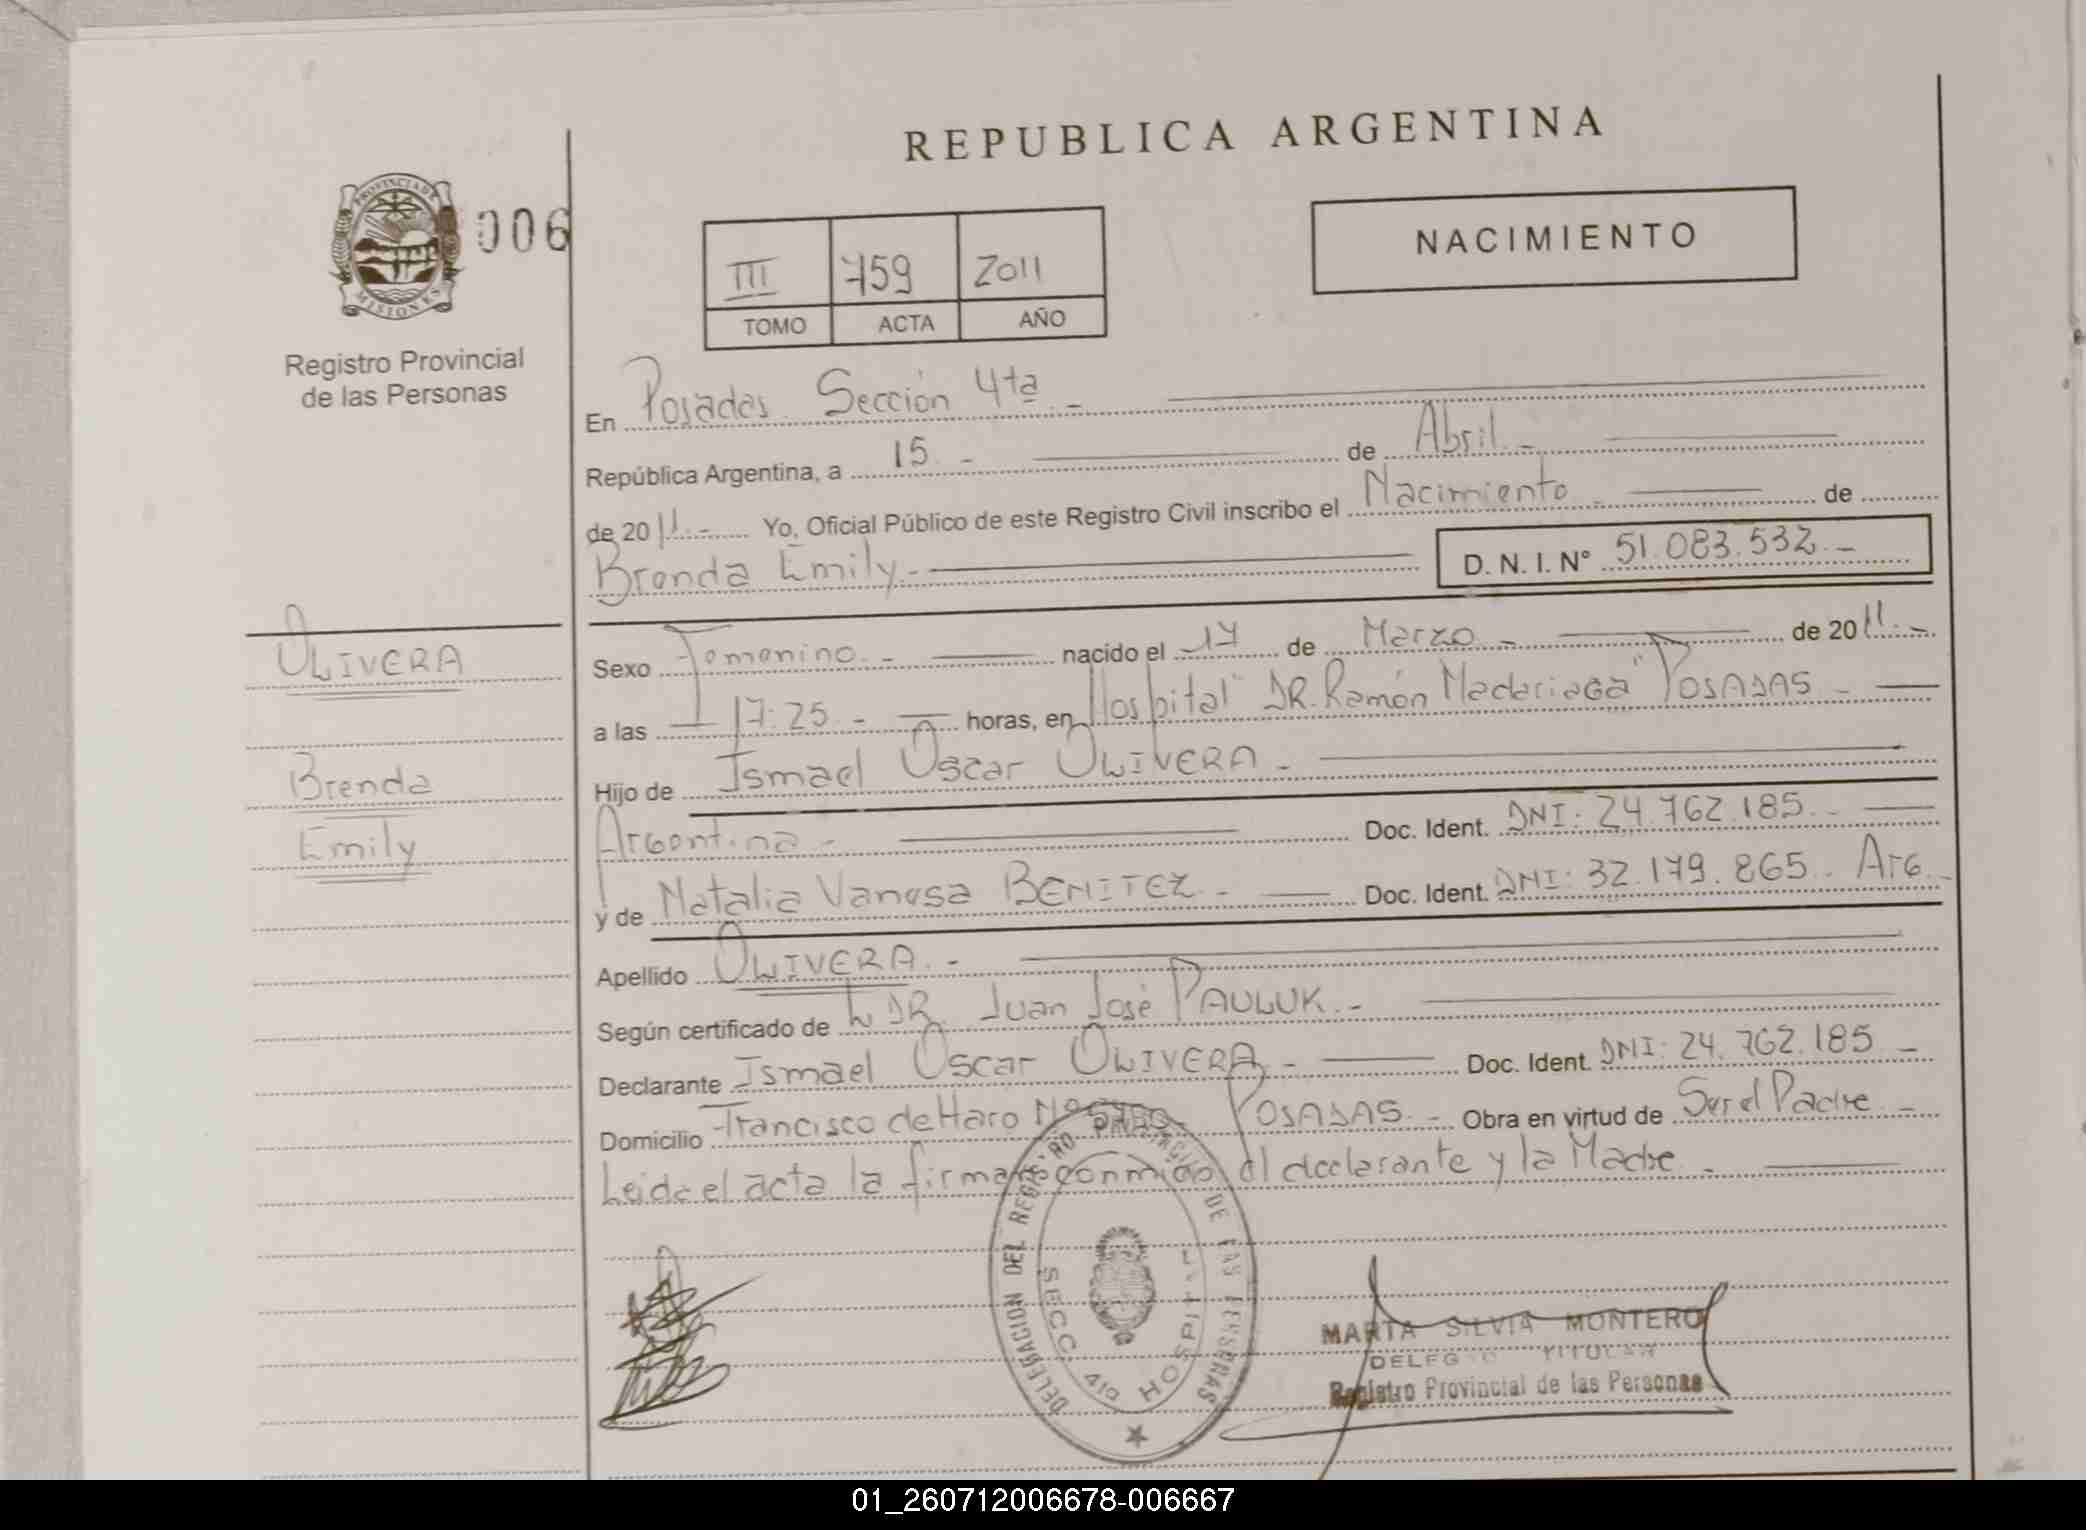 REPUBLICA ARGENTINA
PROVINCIA DE
MISIONES
006
Registro Provincial
de las Personas
III 759 2011
TOMO ACTA AÑO
NACIMIENTO
En Posadas Sección 4ta.-
República Argentina, a 15.- de Abril.-
de 2011.- Yo, Oficial Público de este Registro Civil inscribo el Nacimiento.- de
Brenda Emily.- D. N. I. N° 51.083.532.-
OLIVERA
Brenda
Emily
Sexo Femenino.- nacido el 17 de Marzo.- de 2011.-
a las 17:25.- horas, en Hospital "DR. Ramón Madariaga" POSADAS.-
Hijo de Ismael Oscar OLIVERA.-
Argentina.- Doc. Ident. DNI: 24.762.185.-
y de Natalia Vanesa BENITEZ.- Doc. Ident. DNI: 32.179.865.- Arg.-
Apellido OLIVERA.-
Según certificado de DR. Juan José PAULUK.-
Declarante Ismael Oscar OLIVERA.- Doc. Ident. DNI: 24.762.185.-
Domicilio Francisco de Haro Nº POSADAS.- Obra en virtud de Ser el Padre.-
Leida el acta la firman conmigo el declarante y la Madre.-
DELEGACION DEL REGISTRO PROVINCIAL DE LAS PERSONAS
SECC. 4ta HOSPITAL
MARTA SILVIA MONTERO
DELEGADO TITULAR
Registro Provincial de las Personas
01_260712006678-006667